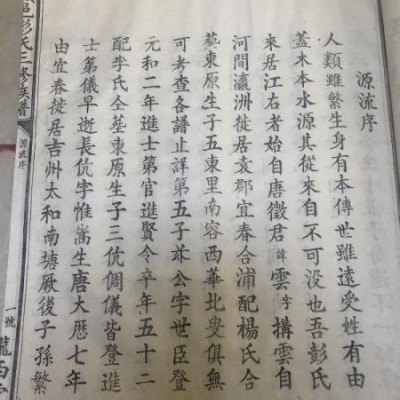 源流序
人類雖繁生身有本傳世雖遠受姓有由
蓋木本水源其從來自不可没也吾彭氏
來居江右者始自唐徵君諱雲字搆雲自
河間瀛洲徙居袁郡宜春合浦配楊氏合
塟東原生子五東里南容西華北叟俱無
可考查各譜止詳第五子玆公字世臣登
元和二年進士第官進賢令卒年五十二
配李氏仝塟東原生子三伉倜儀皆登進
士第儀早逝長伉字惟嵩生唐大歷七年
由宜春徙居吉州太和南塘厥後子孫繁
彭氏三修族譜
源流序
一號
隴西